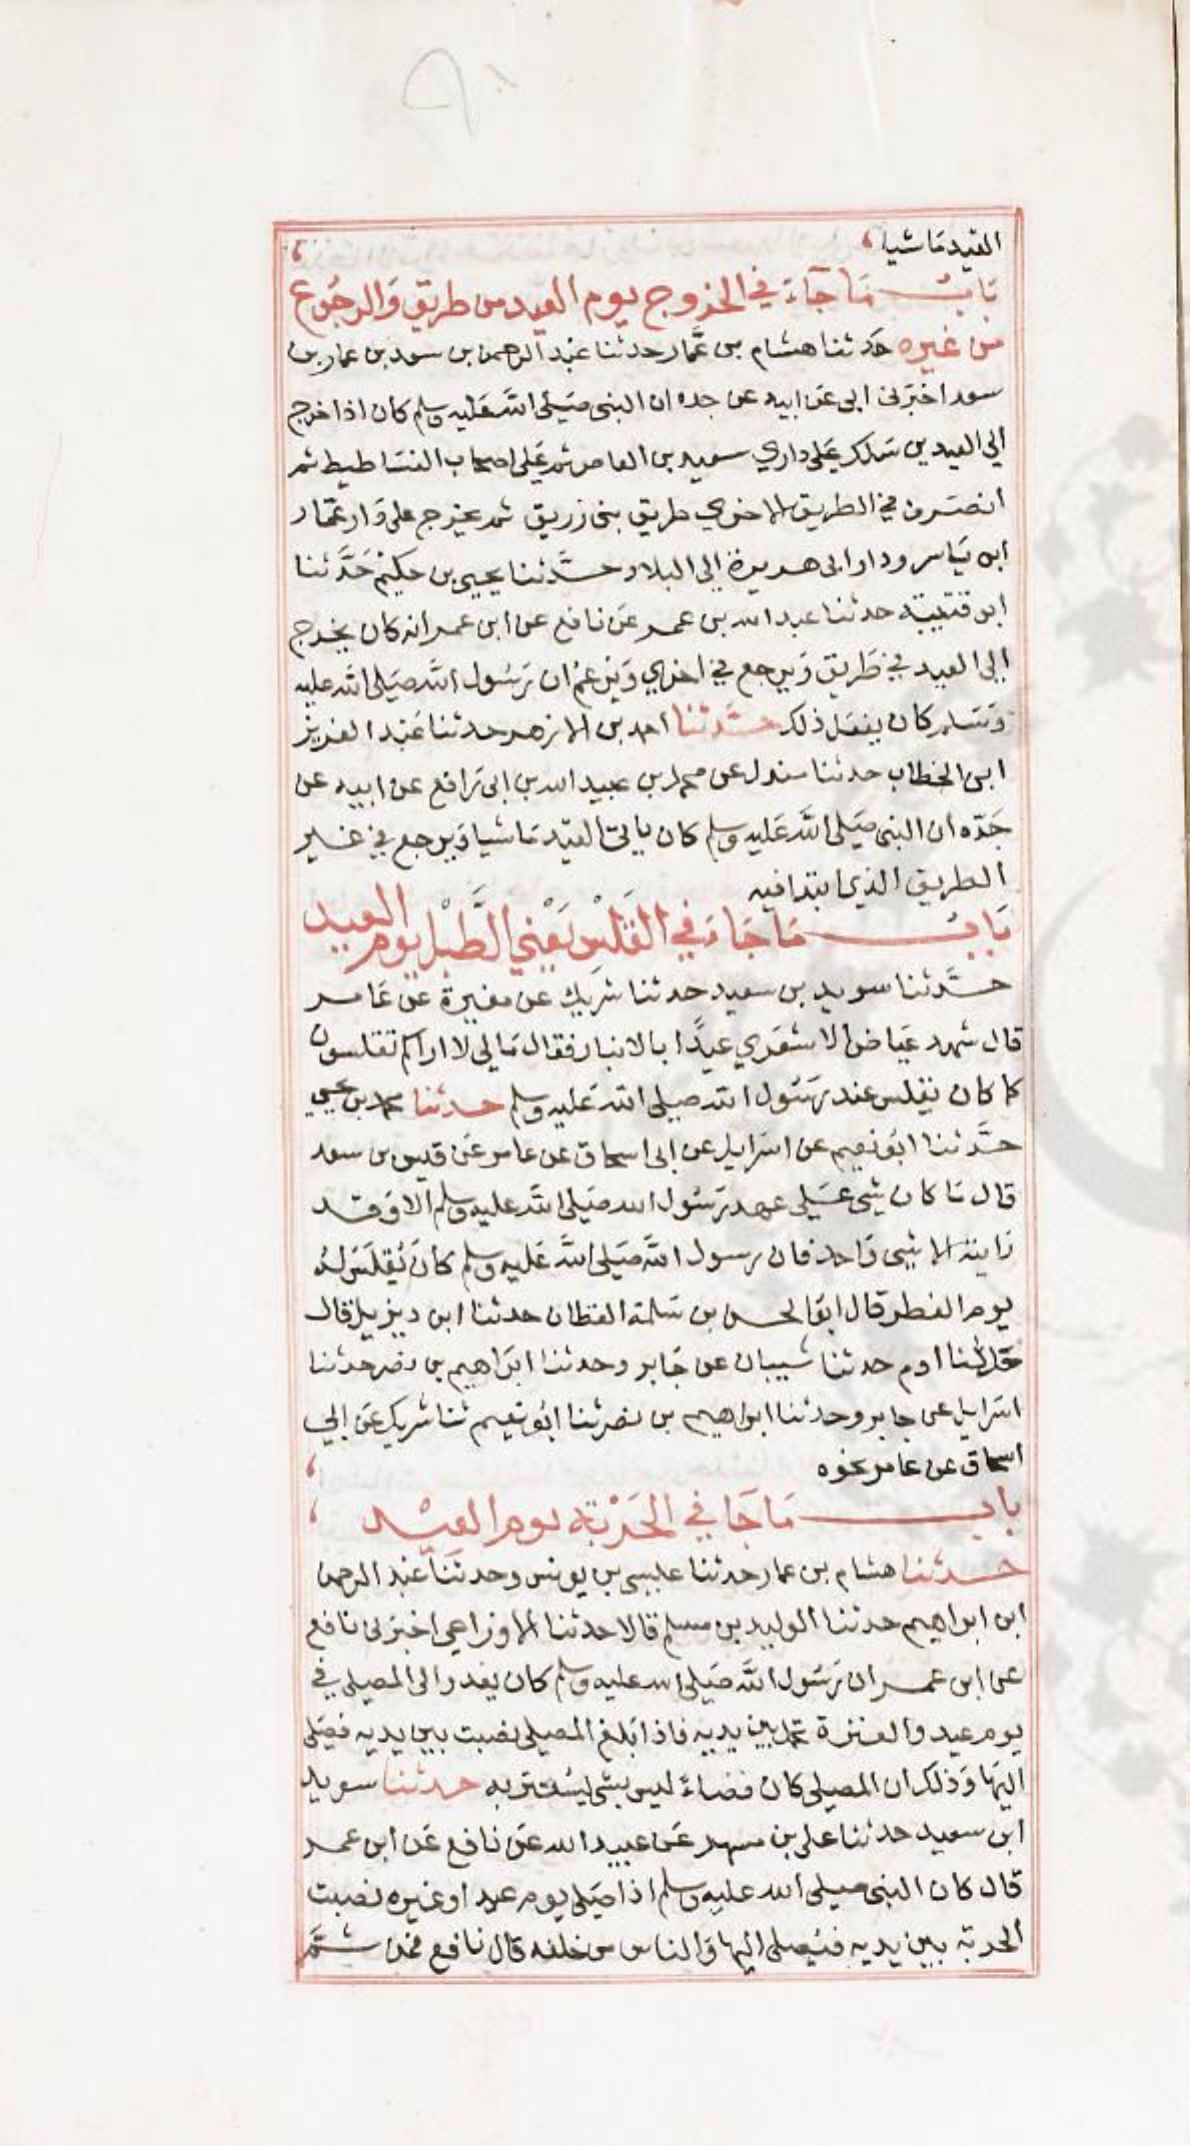 العيد ماشيا
باب ما جآء في الخروج يوم العيد من طريق والرجوع
من غيره حدثنا هشام بن عمار حدثنا عبد الرحمن بن سعد بن عمار بن
سعد اخبرني ابي عن ابيه عن جده ان النبي صلى الله عليه وسلم كان اذا خرج
الي العيدين سلك على داري سعيد بن العاص ثم على اصحاب الفساطيط ثم
انصرف في الطريق الاخري طريق بني زريق ثم يخرج على دار عمار
ابن ياسر ودار ابي هريرة الي البلاد حدثنا يحيى بن حكيم حدثنا
ابو قتيبة حدثنا عبد الله بن عمر عن نافع عن ابن عمر انه كان يخرج
الى العيد في طريق ويرجع في اخري ويزعم ان رسول الله صلى الله عليه
وسلم كان يفعل ذلك حدثنا احمد بن الازهر حدثنا عبد العزيز
ابن الخطاب حدثنا مندل عن محمد بن عبيد الله بن ابي رافع عن ابيه عن
جده ان النبي صلى الله عليه وسلم كان ياتي العيد ماشيا ويرجع في غير
الطريق الذي ابتدا فيه
باب ما جاء في القلس يعني الطبل يوم العيد
حدثنا سويد بن سعيد حدثنا شريك عن مغيرة عن عامر
قال شهد عياض الاشعري عيدا بالانبار فقال مالي لا اراكم تقلسون
كما كان يقلس عند رسول الله صلى الله عليه وسلم حدثنا محمد بن يحيى
حدثنا ابو نعيم عن اسرايل عن ابي اسحاق عن عامر عن قيس بن سعد
قال ما كان شي على عهد رسول الله صلى الله عليه وسلم الا وقد
رايته الا شي واحد فان رسول الله صلى الله عليه وسلم كان يقلس له
يوم الفطر قال ابو الحسن بن سلمة القطان حدثنا ابن ديزيل قال
حدثنا ادم حدثنا شيبان عن جابر وحدثنا ابراهيم بن نصر حدثنا
اسرايل عن جابر وحدثنا ابراهيم بن نصر ثنا ابو نعيم ثنا شريك عن ابي
اسحاق عن عامر نحوه
باب ما جا في الحربة يوم العيد
حدثنا هشام بن عمار حدثنا عيسى بن يونس وحدثنا عبد الرحمن
ابن ابراهيم حدثنا الوليد بن مسلم قالا حدثنا الاوزاعي اخبرني نافع
عن ابن عمر ان رسول الله صلى الله عليه وسلم كان يغدو الى المصلى في
يوم عيد والعنزة تحمل بين يديه فاذا بلغ المصلى نصبت بين يديه فيصلى
اليها وذلك ان المصلى كان فضاء ليس بشي ليستتر به حدثنا سويد
ابن سعيد حدثنا على بن مسهر عن عبيد الله عن نافع عن ابن عمر
قال كان النبي صلى الله عليه وسلم اذا صلى يوم عيد او غيره نصبت
الحربة بين يديه فيصلى اليها والناس من خلفه قال نافع فمن ثم